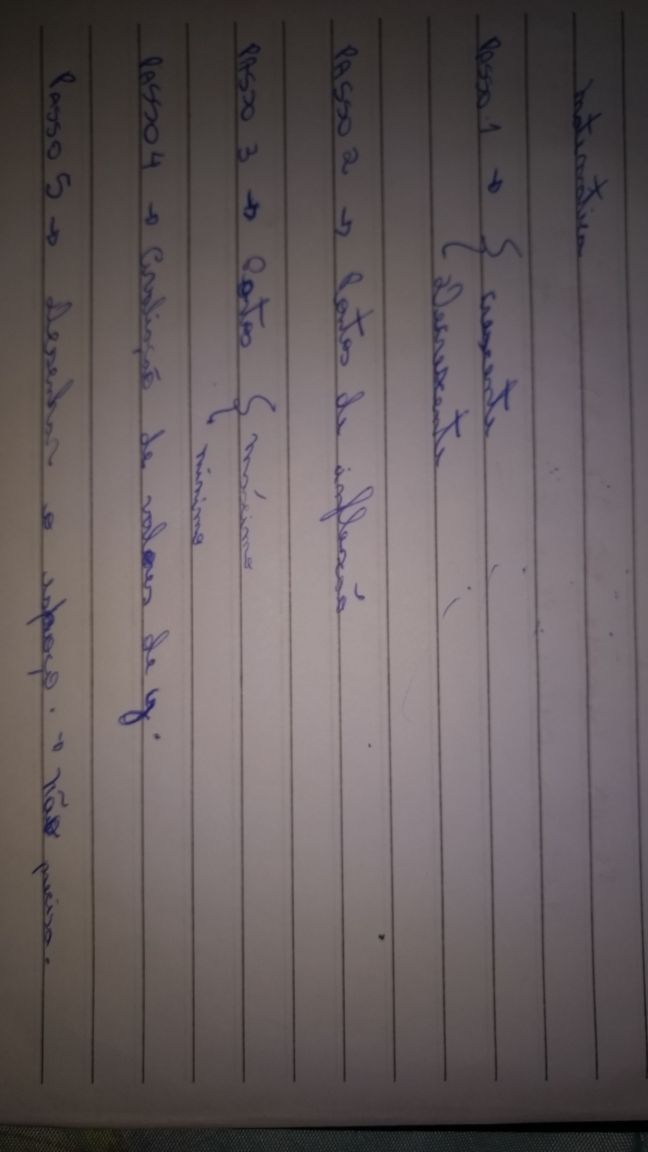 Matemática
PASSO 1 → { crescente
{ Decrescente
PASSO 2 → Pontos de inflexão
PASSO 3 → Pontos { máximo
{ mínimo
PASSO 4 → de valores de y.
PASSO 5 → Desenhar o espaço. → Não preciso.